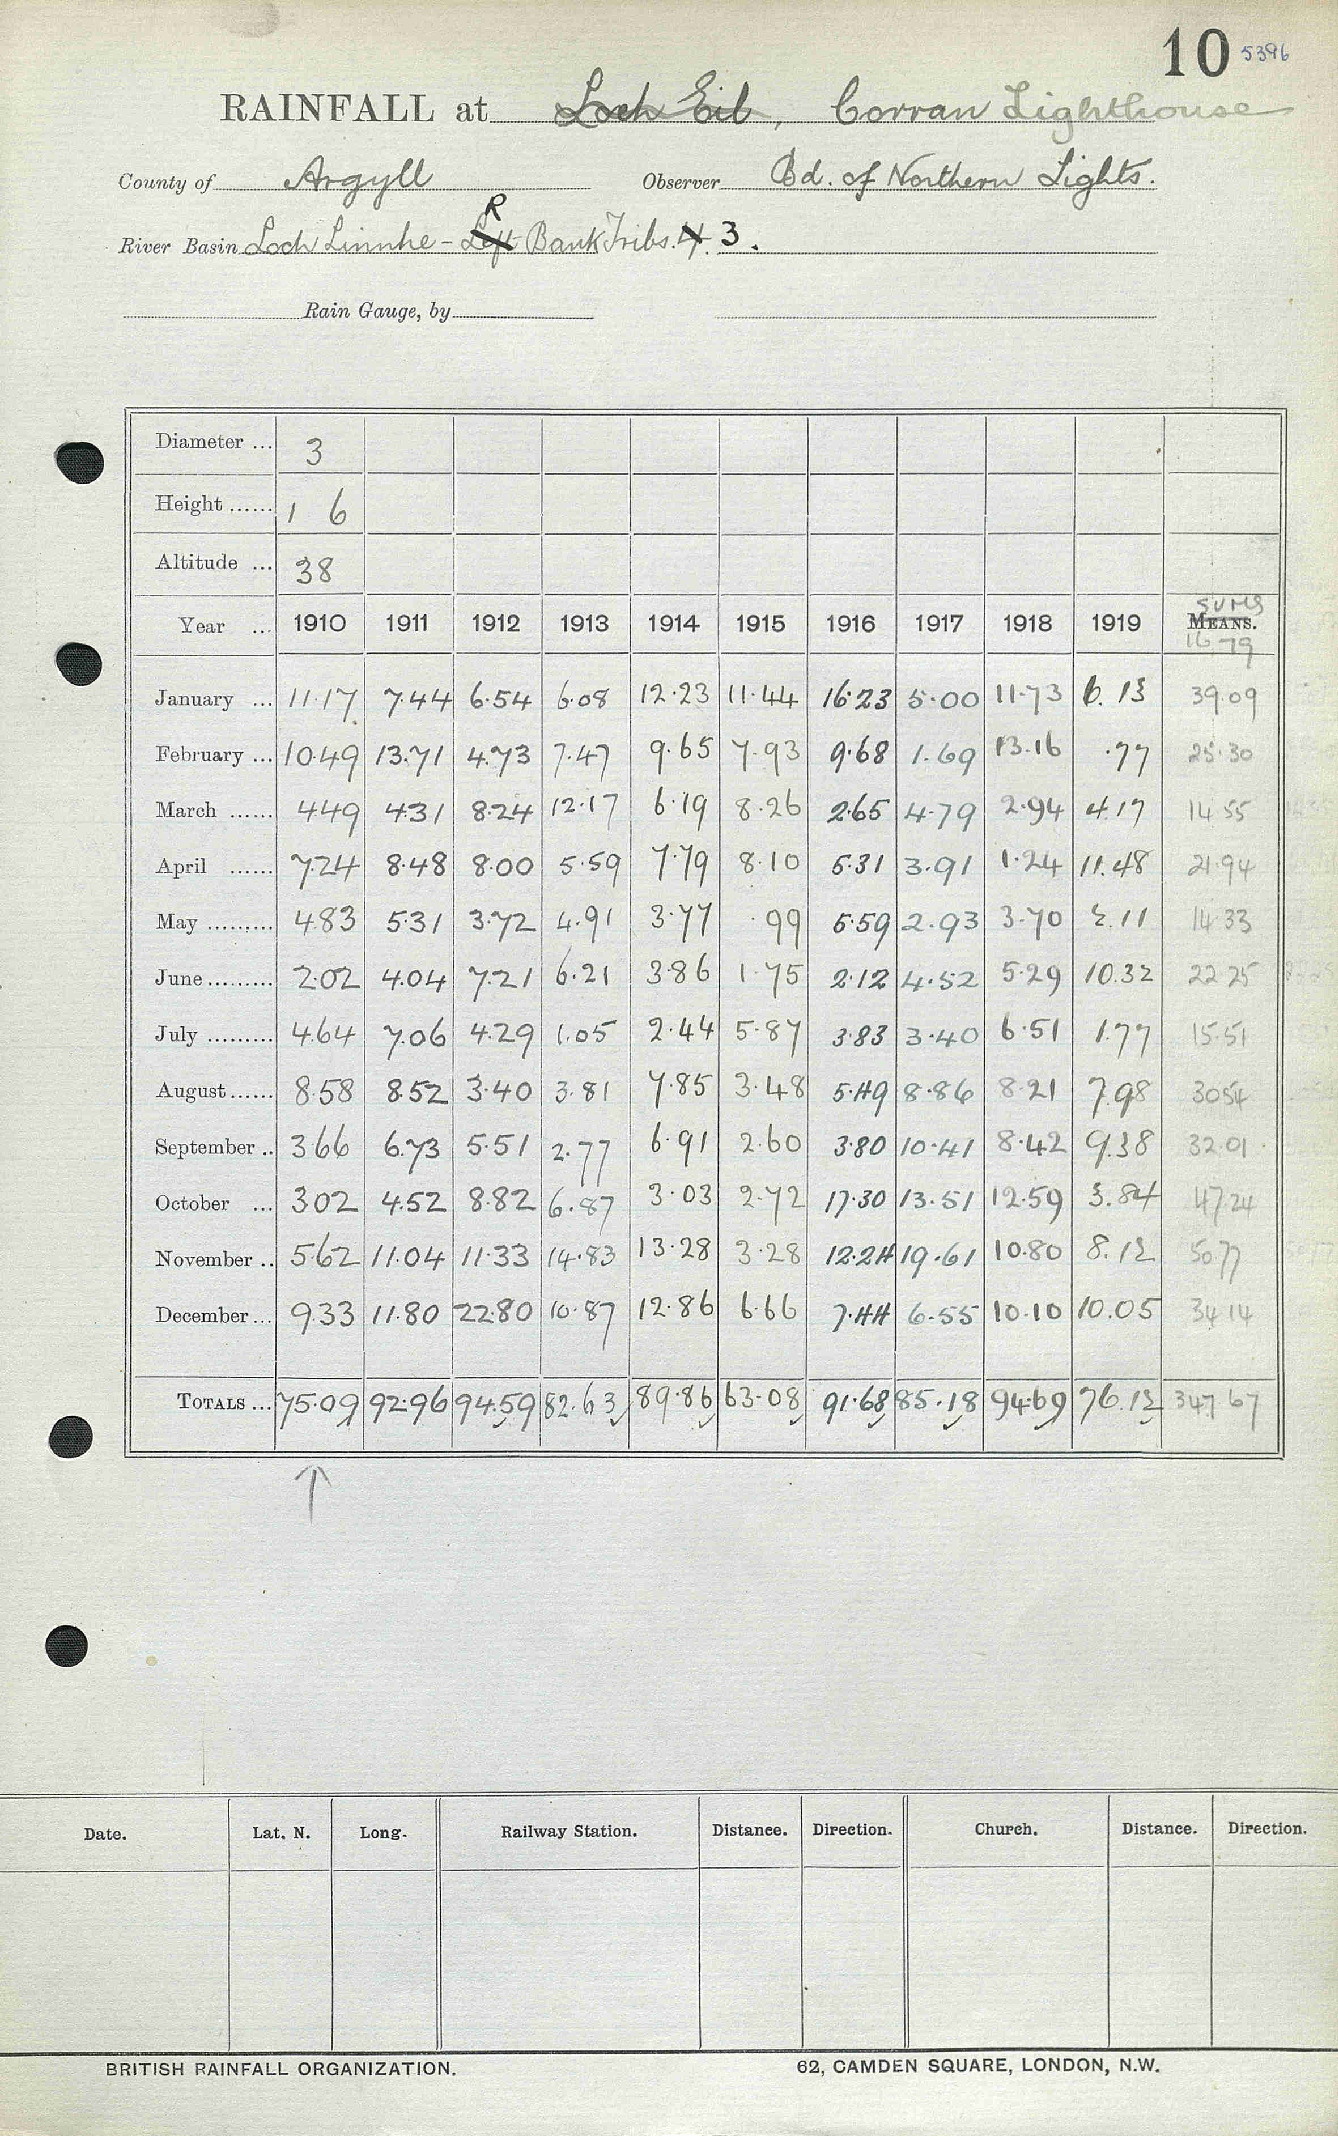 10 5396
RAINFALL at Loch Eil, Corran Lighthouse
County of Argyll Observer Bd. of Northern Lights.
River Basin Loch Linnhe - Left R Bank Tribs. 4. 3.
Rain Gauge, by
Diameter ... 3
Height ...... 1 6
Altitude ... 38
Year ... 1910 1911 1912 1913 1914 1915 1916 1917 1918 1919 MEANS. SUMS 16-79
January ... 11.17 7.44 6.54 6.08 12.23 11.44 16.23 5.00 11.73 6.13 39.09
February ... 10.49 13.71 4.73 7.47 9.65 7.93 9.68 1.69 13.16 .77 25.30
March ...... 4.49 4.31 8.24 12.17 6.19 8.26 2.65 4.79 2.94 4.17 14.55
April ...... 7.24 8.48 8.00 5.59 7.79 8.10 5.31 3.91 1.24 11.48 21.94
May ......... 4.83 5.31 3.72 4.91 3.77 .99 5.59 2.93 3.70 2.11 14.33
June ......... 2.02 4.04 7.21 6.21 3.86 1.75 2.12 4.52 5.29 10.32 22.25
July ......... 4.64 7.06 4.29 1.05 2.44 5.87 3.83 3.40 6.51 1.77 15.51
August ...... 8.58 8.52 3.40 3.81 7.85 3.48 5.49 8.86 8.21 7.98 30.54
September .. 3.66 6.73 5.51 2.77 6.91 2.60 3.80 10.41 8.42 9.38 32.01
October ... 3.02 4.52 8.82 6.87 3.03 2.72 17.30 13.51 12.59 3.84 47.24
November .. 5.62 11.04 11.33 14.83 13.28 3.28 12.24 19.61 10.80 8.12 50.77
December ... 9.33 11.80 22.80 10.87 12.86 6.66 7.44 6.55 10.10 10.05 34.14
TOTALS ... 75.09 92.96 94.59 82.63 89.86 63.08 91.68 85.18 94.69 76.12 347.67
Date. Lat. N. Long. Railway Station. Distance. Direction. Church. Distance. Direction.
BRITISH RAINFALL ORGANIZATION. 62, CAMDEN SQUARE, LONDON, N.W.